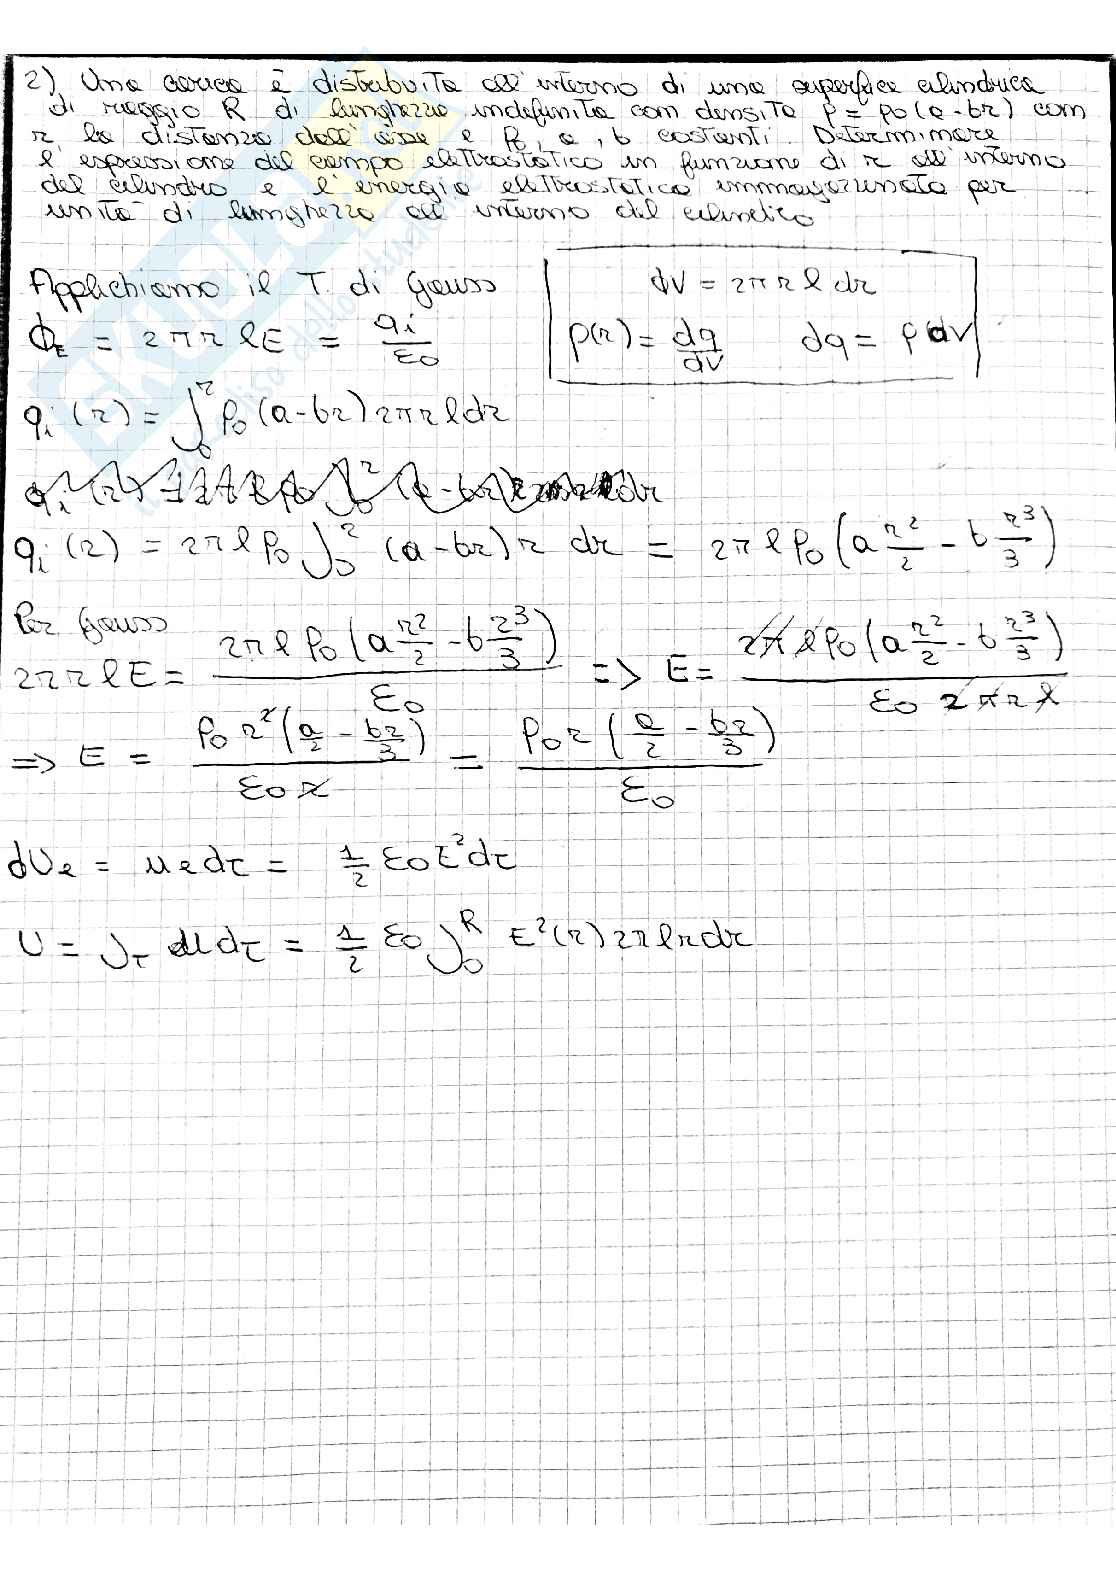 2) Una carica è distribuita all'interno di una superfice cilindrica
di raggio R di lunghezza indefinita con densità ρ = ρ0 (a - br) con
r, la distanza dall'asse e ρ0, a, b costanti. Determinare
l'espressione del campo elettrostatico in funzione di r all'interno
del cilindro e l'energia elettrostatica immagazzinata per
unità di lunghezza all'interno del cilindro
Applichiamo il T. di Gauss
ϕE = 2πrlE = qi/ε0
dV = 2πrldr
ρ(r) = dq/dV dq = ρdV
qi(r) = ∫₀^r ρ0(a-br)2πrldr
qi(r) = 2πlρ0 ∫₀^r (a-br)r dr = 2πlρ0(a r²/2 - b r³/3)
Per Gauss
2πrlE = 2πlρ0(a r²/2 - b r³/3)/ε0 => E = 2πlρ0(a r²/2 - b r³/3)/ε0 2πrl
=> E = ρ0r²(a/2 - br/3)/ε0r = ρ0r(a/2 - br/3)/ε0
dUe = uedτ = 1/2 ε0E²dτ
U = ∫τ udτ = 1/2 ε0 ∫₀^R E²(r)2πlrdr